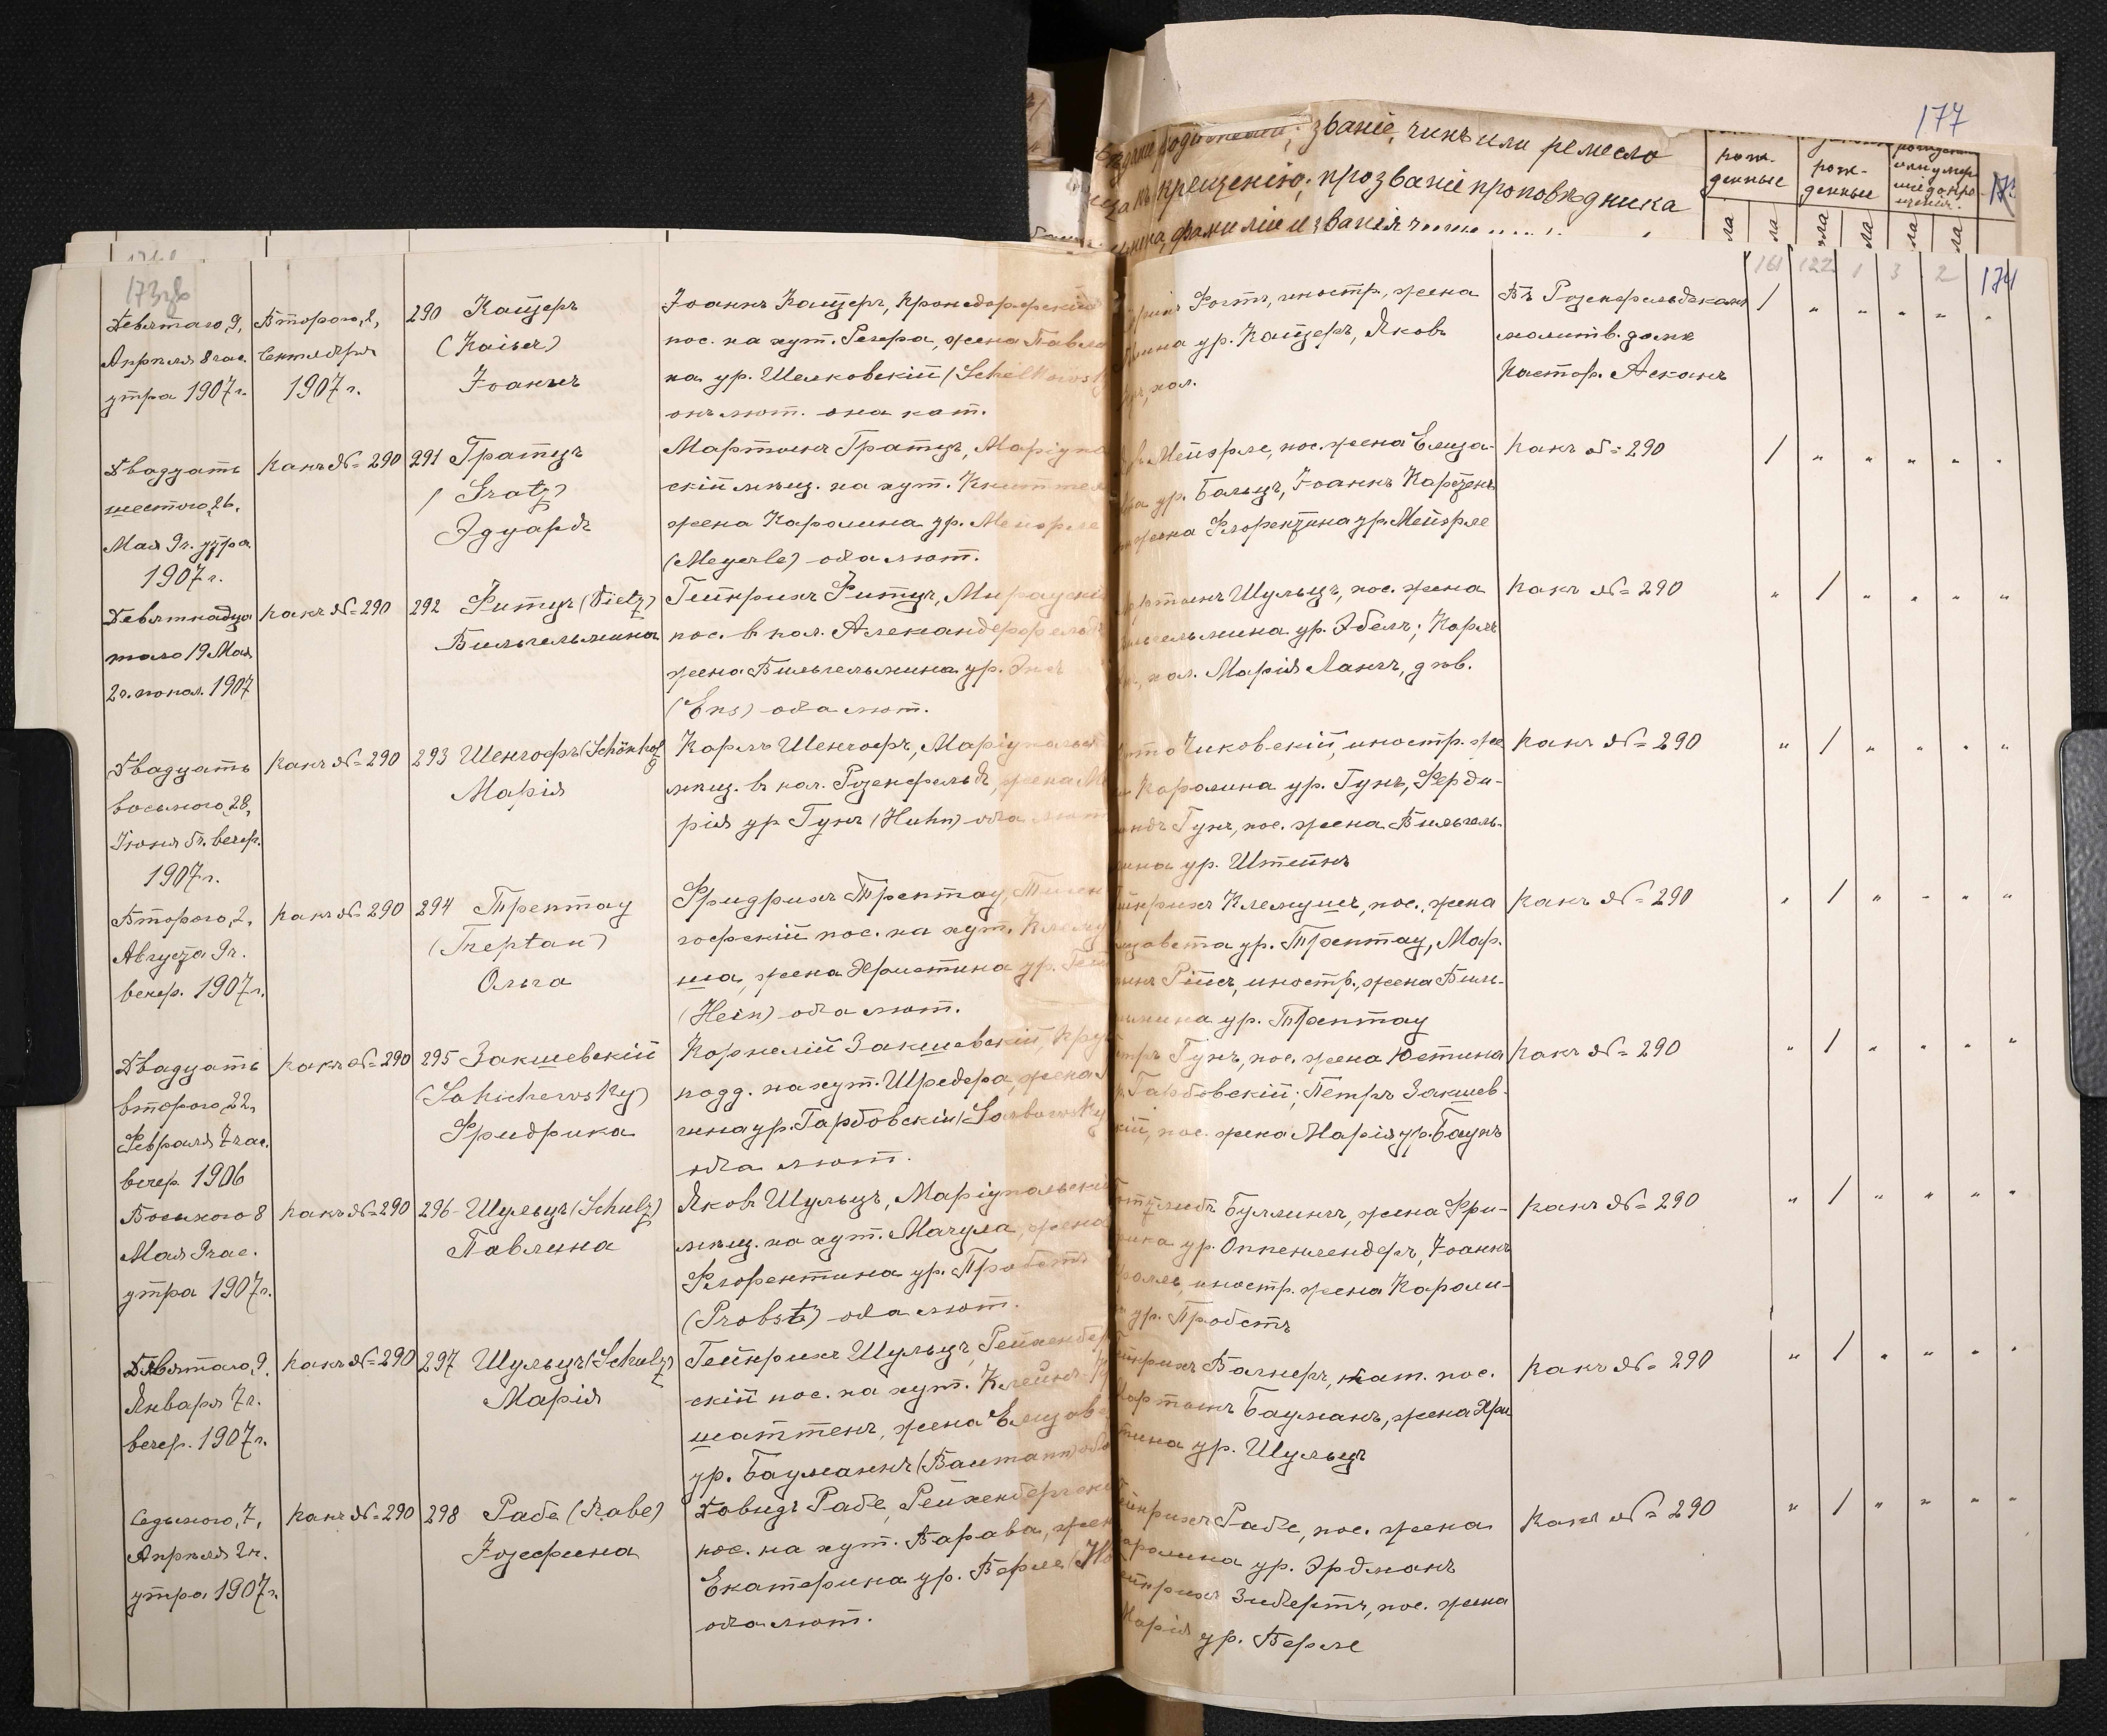 177
званіе, чинъ или ремесло
къ крещенію; прозваніе проповѣдника
фамиліе и званія
рож-
денные
рож-
денные
ла
ла
ла
ла
ла
ла
173об
Девятаго, 9,
Апрѣля 8 час.
утра 1907 г.
Второго, 2,
Сентября
1907 г.
290 Кайзеръ
(Kaiser)
Іоаннъ
Іоаннъ Кайзеръ, Кронсдорфскій
пос. на хут. Регера, жена Павли
на ур. Шелковскій (Schelkowsk
онъ лют. она кат.
Фогтъ, иностр., жена
ур. Кайзеръ, Яковъ
кол.
Въ Розенфельдскомъ
молитв. домѣ
Пастор. Асканъ
161 122 1 3 2 174
/ " " " " "
Двадцать
шестого, 26,
Мая 9 ч. утра
1907 г.
Какъ № 290
291 Гратцъ
(Gratz)
Эдуардъ
Мартынъ Гратцъ, Маріупо
скій мѣщ. на хут. Книттел
жена Каролина ур. Мейерле
(Meyerle) оба лют.
Мейерле, пос. жена Елиза-
ур. Бальцъ, Іоаннъ Карженъ
жена Флорентина ур. Мейерле
Какъ № 290
/ " " " " "
Девятнадца
таго 19 Мая
2 ч. попол. 1907
Какъ № 290
292 Фитцъ (Vietz)
Вильгельмина
Гейнрихъ Фитцъ, Мираускій
пос. в кол. Александерфельдъ
жена Вильгельмина ур. Энсъ
(Ens) оба лют.
Мартынъ Шульцъ, пос. жена
Вильгельмина ур. Эбель; Карлъ
кол. Марія Лангъ, дѣв.
Какъ № 290
" / " " " "
Двадцать
восьмого, 28,
Іюня 5 ч. вечер.
1907 г.
Какъ № 290
293 Шенгофъ (Schönhof)
Марія
Карлъ Шенгофъ, Маріупольск
мѣщ. в кол. Розенфельдъ, жена Ма
рія ур Гунъ (Huhn) оба лют
Чиковскій, иностр. же
Каролина ур. Гунъ, Ферди-
нандъ Гунъ, пос. жена Вильгель-
мина ур. Штейнъ
Какъ № 290
" / " " " "
Второго, 2,
Августа 9 ч.
вечер. 1907 г.
Какъ № 290
294 Трептау
(Treptau)
Ольга
Фридрихъ Трептау, Тиген
гофскій пос. на хут. Клему
ша, жена Христина ур. Гейн
(Hein) оба лют.
Гейнрихъ Клемушъ, пос., жена
Елизавета ур. Трептау, Мар.
тинъ Рійсъ, иностр., жена Виль-
гельмина ур. Трептау
Какъ № 290
" / " " " "
Двадцать
второго, 22,
Февраля 7 час.
вечер. 1906
Какъ № 290
295 Закшевскій
(Sakschewsky)
Фридрика
Корнелій Закшевскій, Прус
подд. на хут. Шредера, жена
тина ур. Гарбовскій (Garbowsky
оба лют.
Гунъ, пос. жена Юстина
ур. Гарбовскій; Петръ Закшев-
скій, пос. жена Марія ур. Баунъ
Какъ № 290
" / " " " "
Восьмого 8
Мая 9 час.
утра 1907 г.
Какъ № 290
296 Шульцъ (Schulz)
Павлина
Яковъ Шульцъ, Маріупольскій
мѣщ. на хут. Мачула, жена
Флорентина ур. Пробстъ
(Probst) оба лют.
Готлибъ Буллингъ, жена Фри-
дрика ур. Оппенлендеръ, Іоаннъ
иностр. жена Кароли-
на ур. Пробстъ
Какъ № 290
" / " " " "
Девятаго, 9,
Января 7 ч.
вечер. 1907 г.
Какъ № 290
297 Шульцъ (Schulz)
Марія
Гейнрихъ Шульцъ, Рейхенбер
скій пос. на хут. Клейнъ-Кон
шаттенъ, жена Елизаве
ур. Бауманнъ (Baumann) оба
Гейнрихъ Вагнеръ, кат. пос.
Мартынъ Бауманъ, жена Хри
стина ур. Шульцъ
Какъ № 290
" / " " " "
Седьмого, 7,
Апрѣля 2 ч.
утра 1907 г.
Какъ № 290
298 Рабе (Rabe)
Іозефина
Давидъ Рабе, Рейхенбергски
пос. на хут. Варава, жен
Екатерина ур. Верле
оба лют.
Гейнрихъ Рабе, пос. жена
Каролина ур. Эрдманъ
Гейнрихъ Зибертъ, пос. жена
Марія ур. Верле
Какъ № 290
" / " " " "